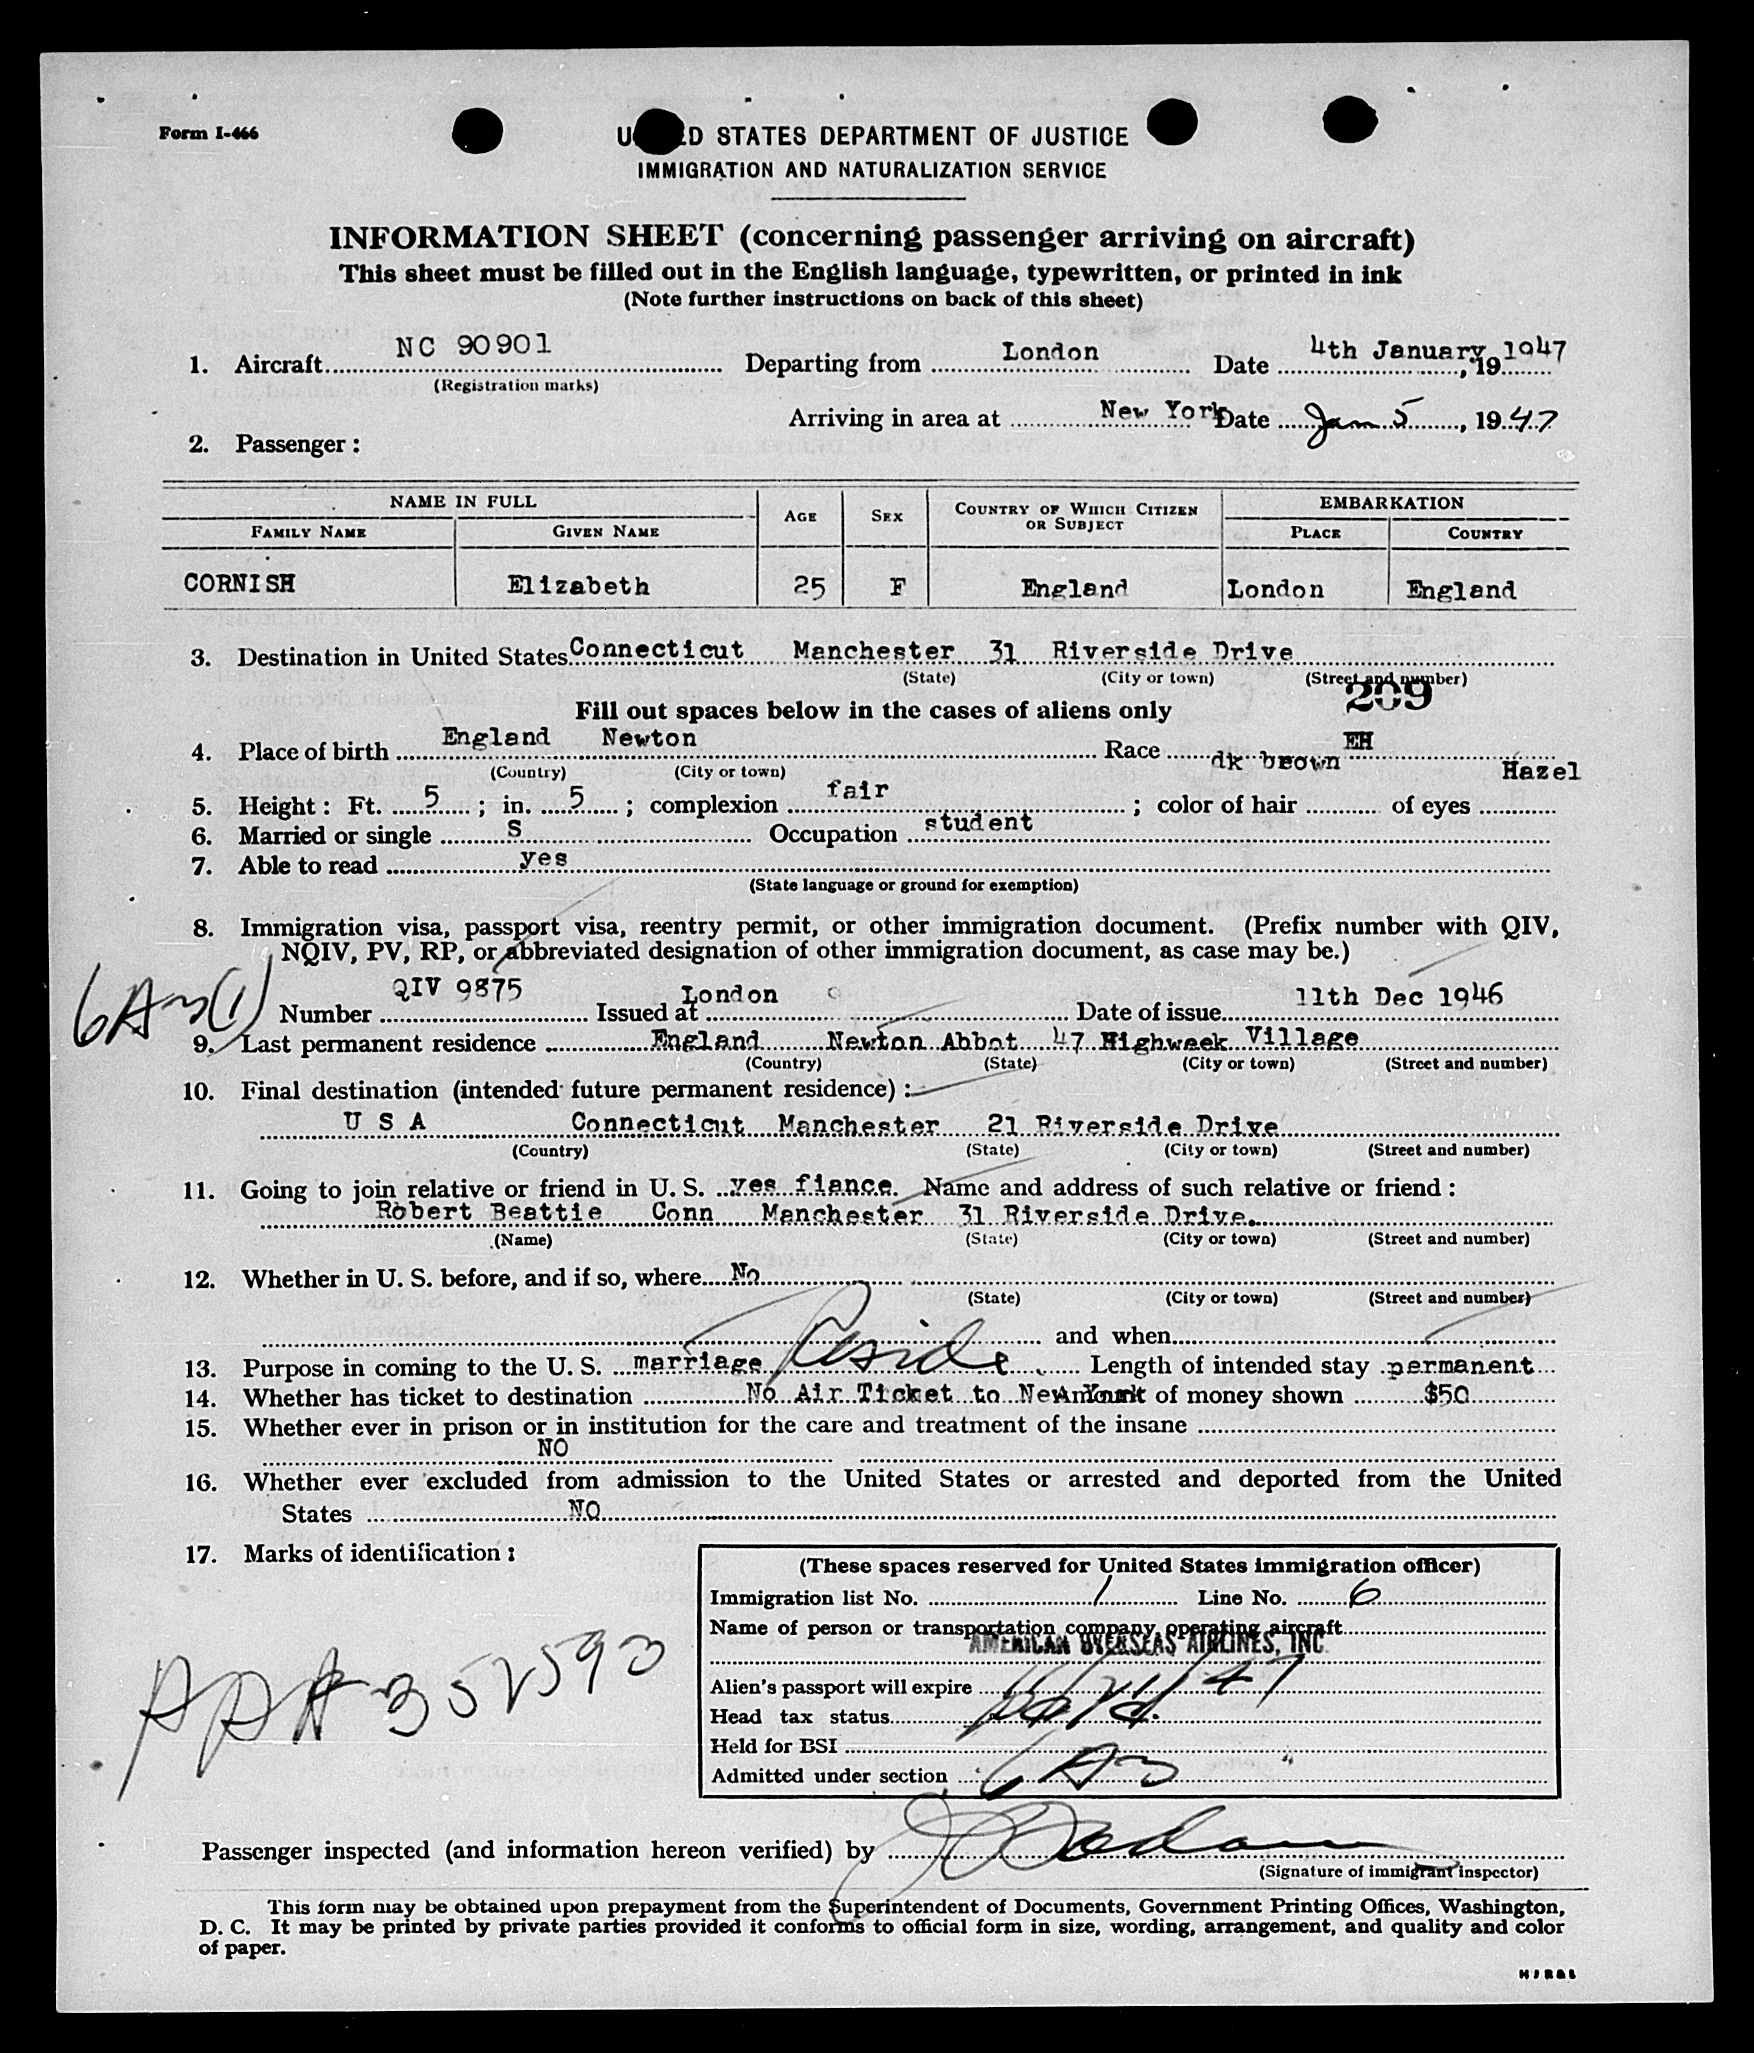 Form I-466
UNITED STATES DEPARTMENT OF JUSTICE
IMMIGRATION AND NATURALIZATION SERVICE
INFORMATION SHEET (concerning passenger arriving on aircraft)
This sheet must be filled out in the English language, typewritten, or printed in ink
(Note further instructions on back of this sheet)
1. Aircraft NC 90901 Departing from London Date 4th January, 1947
(Registration marks)
Arriving in area at New York Date Jan 5, 1947
2. Passenger :
NAME IN FULL AGE SEX COUNTRY OF WHICH CITIZEN OR SUBJECT EMBARKATION
FAMILY NAME GIVEN NAME PLACE COUNTRY
CORNISH Elizabeth 25 F England London England
3. Destination in United States Connecticut Manchester 31 Riverside Drive
(State) (City or town) (Street and number)
209
Fill out spaces below in the cases of aliens only
4. Place of birth England Newton Race EH
(Country) (City or town) dk brown Hazel
5. Height : Ft. 5 ; in. 5 ; complexion fair ; color of hair of eyes
6. Married or single S Occupation student
7. Able to read yes
(State language or ground for exemption)
8. Immigration visa, passport visa, reentry permit, or other immigration document. (Prefix number with QIV,
NQIV, PV, RP, or abbreviated designation of other immigration document, as case may be.)
6A-3(1) Number QIV 9875 Issued at London Date of issue 11th Dec 1946
9. Last permanent residence England Newton Abbot 47 Highweek Village
(Country) (State) (City or town) (Street and number)
10. Final destination (intended future permanent residence) :
U S A Connecticut Manchester 21 Riverside Drive
(Country) (State) (City or town) (Street and number)
11. Going to join relative or friend in U. S. yes fiance. Name and address of such relative or friend :
Robert Beattie Conn Manchester 31 Riverside Drive.
(Name) (State) (City or town) (Street and number)
12. Whether in U. S. before, and if so, where No
(State) (City or town) (Street and number)
and when
13. Purpose in coming to the U. S. marriage Reside Length of intended stay permanent
14. Whether has ticket to destination No Air Ticket to New York Amount of money shown $50
15. Whether ever in prison or in institution for the care and treatment of the insane
NO
16. Whether ever excluded from admission to the United States or arrested and deported from the United
States NO
17. Marks of identification :
(These spaces reserved for United States immigration officer)
Immigration list No. 1 Line No. 6
Name of person or transportation company operating aircraft
AMERICAN OVERSEAS AIRLINES, INC.
Alien's passport will expire
Head tax status
Held for BSI
Admitted under section 6 A-3
PP# 352593
Passenger inspected (and information hereon verified) by
(Signature of immigrant inspector)
This form may be obtained upon prepayment from the Superintendent of Documents, Government Printing Offices, Washington,
D. C. It may be printed by private parties provided it conforms to official form in size, wording, arrangement, and quality and color
of paper.